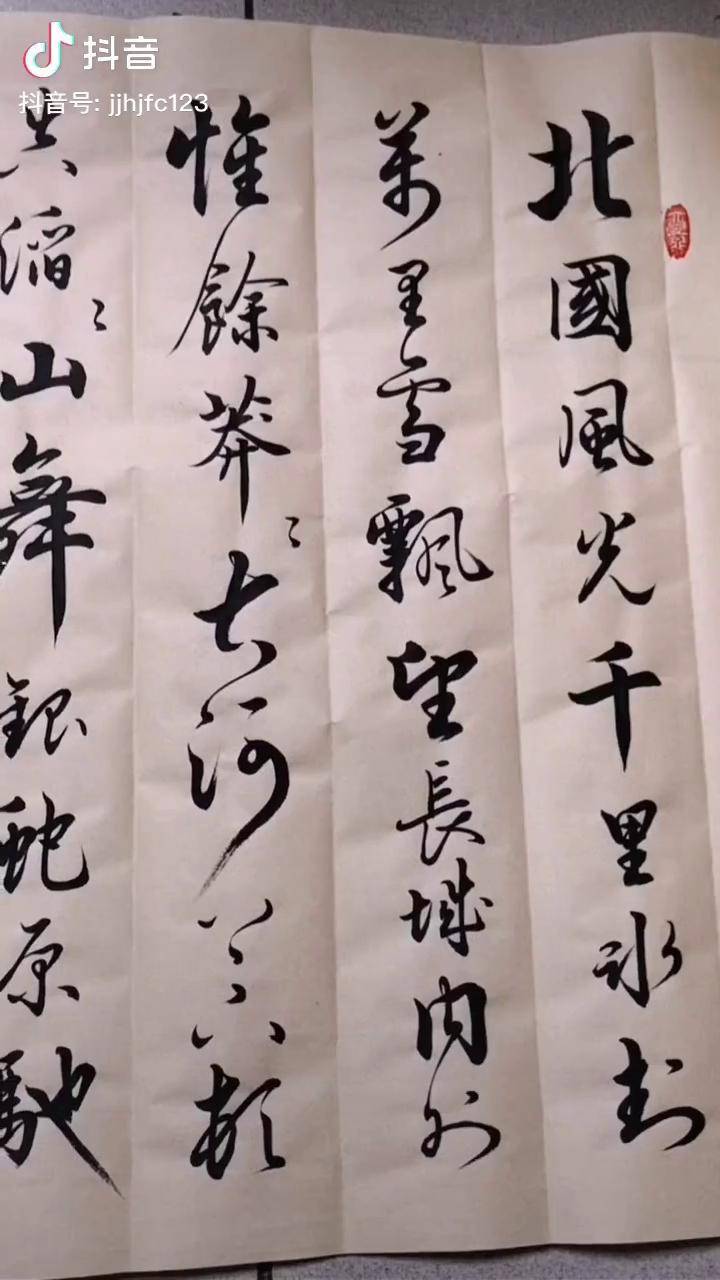 抖音
抖音号: jjhjfc123
北國風光千里冰封
萬里雪飄望長城内外
惟餘莽〻大河上下頓
失滔〻山舞銀蛇原馳